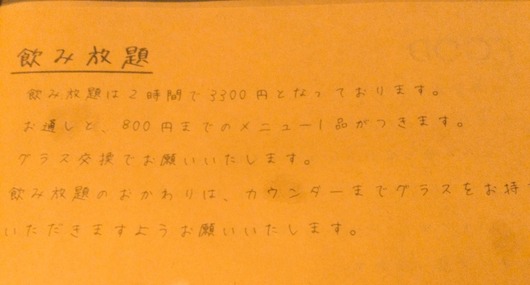 飲み放題
飲み放題は2時間で3300円となっております。
お通しと、800円までのメニュー1品がつきます。
グラス交換でお願いいたします。
飲み放題のおかわりは、カウンターまでグラスをお持
いただきますようお願いいたします。